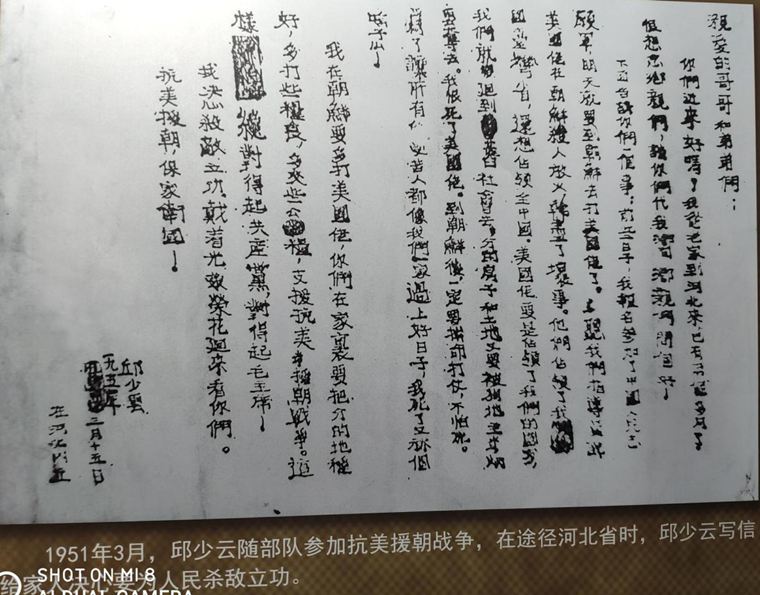 親爱的哥哥和弟弟們：
你們近來好嗎？我從老家到河北來，已有 個多月了
但想念鄉親們，請你們代我 鄉親們問個好
下 告訴你們一個事：前些日子，我報名參加了中國人民志
願軍，明天就要到朝鮮去打美國佬了。 我們指導員講
美國佬在朝鮮殺人放火，幹盡了壞事。他們佔領了我
國台灣省，還想佔領全中國。美國佬要是佔領了我們的國家
我們就要迴到舊社會去。分的房子和土地又要被地主
要奪去。我恨死了美國佬。到朝鮮後，一定要拚命打仗，不怕死。
為了讓所有 受苦人都像我們家過上好日子，我死了又祘個
啥子么
我在朝鮮要多打美國佬，你們在家裏要把分的地種
好，多打些糧食，多交些公糧，支援抗美援朝戰争。這
様 才 對得起共産黨，對得起毛主席！
我决心殺敵立功。戴着光荣花迴來看你們。
抗美援朝，保家衛國！
邱少雲
一九五一年
三月十五日
在河北内丘
1951年3月，邱少云随部队参加抗美援朝战争，在途径河北省时，邱少云写信
给家人决心要为人民杀敌立功。
SHOT ON MI 8
AI DUAL CAMERA